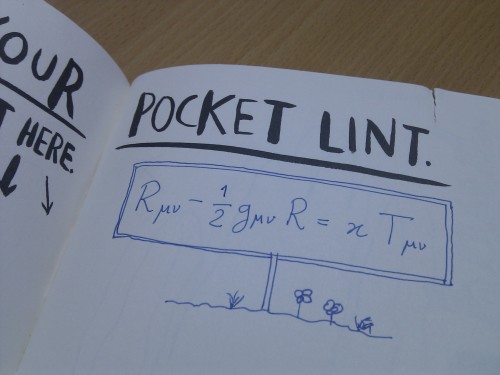 YOUR
T HERE.
POCKET LINT.
Rμν - 1/2 gμν R = ϰ Tμν